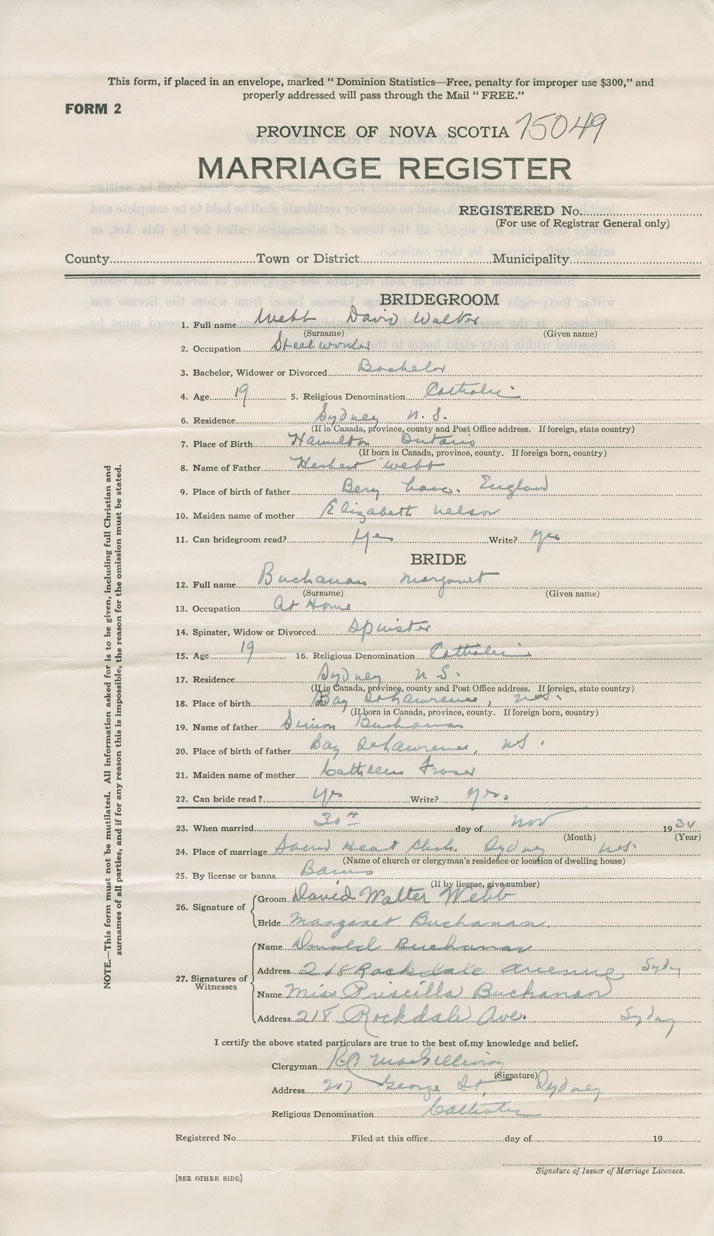 This form, if placed in an envelope, marked " Dominion Statistics—Free, penalty for improper use $300," and
properly addressed will pass through the Mail " FREE."
FORM 2
PROVINCE OF NOVA SCOTIA 75049
MARRIAGE REGISTER
REGISTERED No.
(For use of Registrar General only)
County Town or District Municipality
BRIDEGROOM
1. Full name Webb David Walter
(Surname) (Given name)
2. Occupation Steelworker
3. Bachelor, Widower or Divorced Bachelor
4. Age 19 5. Religious Denomination Catholic
6. Residence Sydney N.S.
(If in Canada, province, county and Post Office address. If foreign, state country)
7. Place of Birth Hamilton Ontario
(If born in Canada, province, county. If foreign born, country)
8. Name of Father Herbert Webb
9. Place of birth of father England
10. Maiden name of mother Elizabeth Nelson
11. Can bridegroom read? Yes Write? Yes
BRIDE
12. Full name Buchanan Margaret
(Surname) (Given name)
13. Occupation At Home
14. Spinster, Widow or Divorced Spinster
15. Age 19 16. Religious Denomination Catholic
17. Residence Sydney N.S.
(If in Canada, province, county and Post Office address. If foreign, state country)
18. Place of birth Bay St Lawrence, N.S.
(If born in Canada, province, county. If foreign born, country)
19. Name of father Simon Buchanan
20. Place of birth of father Bay St Lawrence, N.S.
21. Maiden name of mother Cathleen Fraser
22. Can bride read? Yes Write? Yes.
23. When married 30th day of Nov 1934
(Month) (Year)
24. Place of marriage Sacred Heart Chch. Sydney N.S.
(Name of church or clergyman's residence or location of dwelling house)
25. By license or banns Banns
(If by license, give number)
26. Signature of Groom David Walter Webb
Bride Margaret Buchanan
27. Signatures of Witnesses
Name Donald Buchanan
Address 218 Rockdale Avenue Sydney
Name Miss Priscilla Buchanan
Address 218 Rockdale Ave. Sydney
I certify the above stated particulars are true to the best of my knowledge and belief.
Clergyman MacGillivray
(Signature)
Address 207 George St, Sydney
Religious Denomination Catholic
Registered No. Filed at this office day of 19
Signature of Issuer of Marriage Licenses.
[SEE OTHER SIDE]
NOTE.—This form must not be mutilated. All information asked for is to be given, including full Christian and
surnames of all parties, and if for any reason this is impossible, the reason for the omission must be stated.